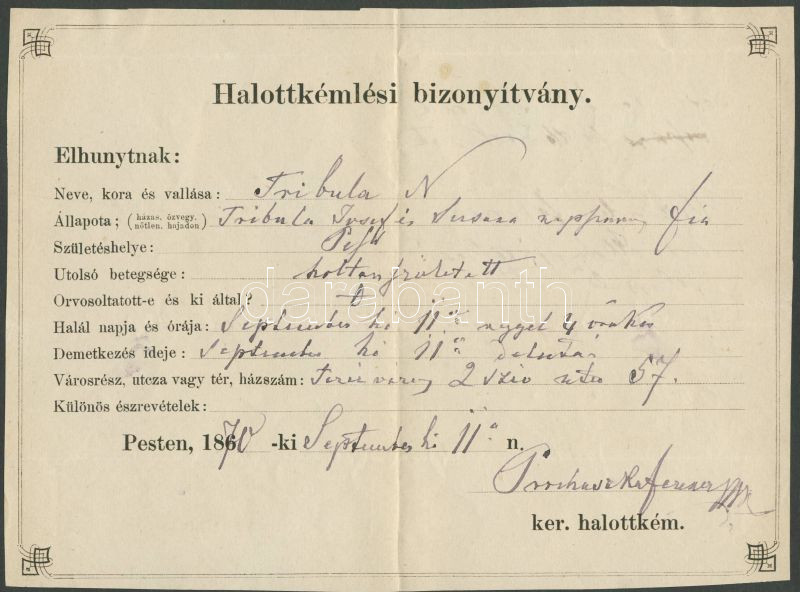 Halottkémlési bizonyítvány.
Elhunytnak:
Neve, kora és vallása: Tribula N
Állapota; (házas. özvegy. nőtlen. hajadon) Tribula és fia
Születéshelye: Pest
Utolsó betegsége: holtan született
Orvosoltatott-e és ki által?
Halál napja és órája: September hó 11 4 órakor
Demetkezés ideje: September hó 11 délután
Városrész, utcza vagy tér, házszám: Teréz város 2 szív utca 57.
Különös észrevételek:
Pesten, 1870 -ki September hó 11 n.
ker. halottkém.
darabanth